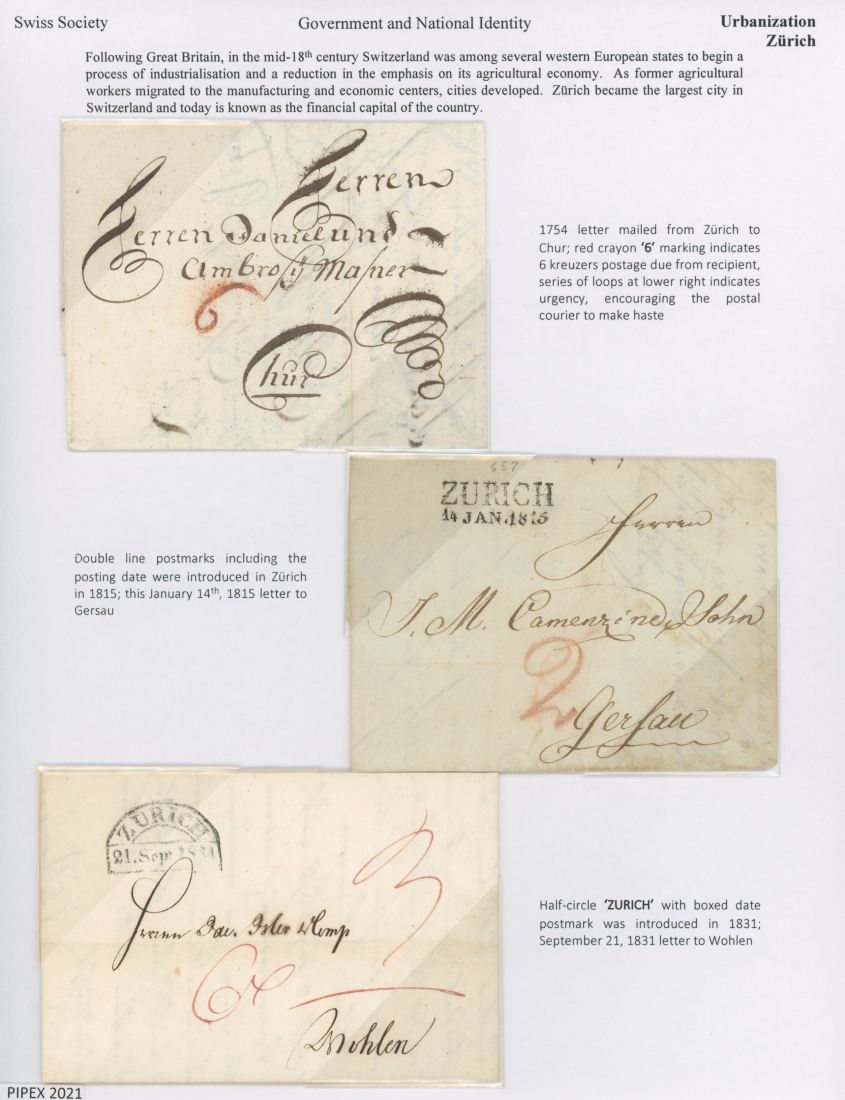 Swiss Society Government and National Identity Urbanization
Zürich
Following Great Britain, in the mid-18th century Switzerland was among several western European states to begin a
process of industrialisation and a reduction in the emphasis on its agricultural economy. As former agricultural
workers migrated to the manufacturing and economic centers, cities developed. Zürich became the largest city in
Switzerland and today is known as the financial capital of the country.
Herren
Herren Daniel und
Ambrosÿ Masner
6
Chur
1754 letter mailed from Zürich to
Chur; red crayon '6' marking indicates
6 kreuzers postage due from recipient,
series of loops at lower right indicates
urgency, encouraging the postal
courier to make haste
657
ZURICH
14 JAN.1815
Herren
J. M. Camenzind Sohn
2
Gersau
Double line postmarks including the
posting date were introduced in Zürich
in 1815; this January 14th, 1815 letter to
Gersau
ZURICH
21. Sept 1831
3
Herren Jac. Isler & Comp
6
Wohlen
Half-circle 'ZURICH' with boxed date
postmark was introduced in 1831;
September 21, 1831 letter to Wohlen
PIPEX 2021